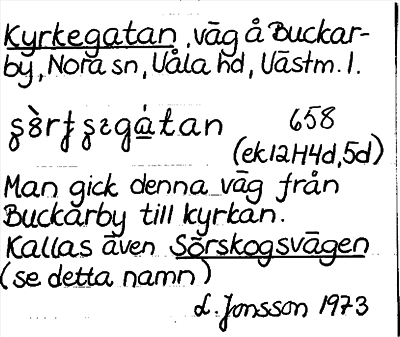 Kyrkegatan, väg å Buckar-
by, Nora sn, Våla hd, Västm. l.
658
(ek.12H4d,5d)
Man gick denna väg från
Buckarby till kyrkan.
Kallas även Sörskogsvägen
(se detta namn)
L. Jonsson 1973